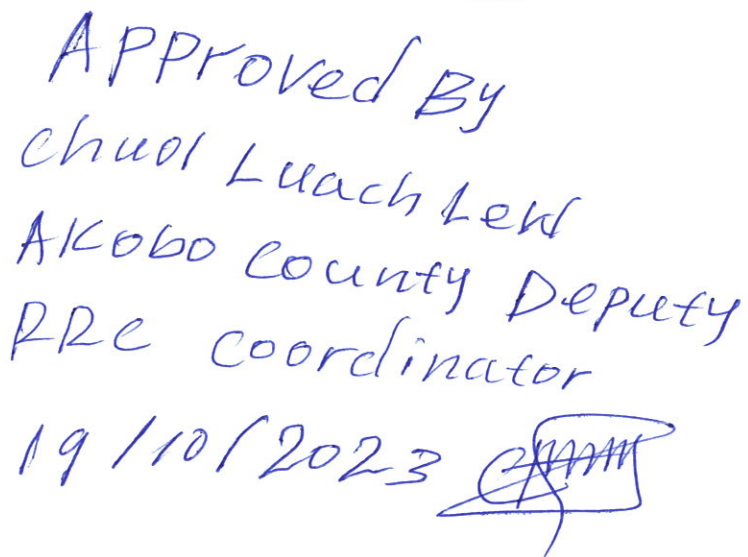 Approved By
Chuol Luach Lew
Akobo County Deputy
RRC Coordinator
19/10/2023